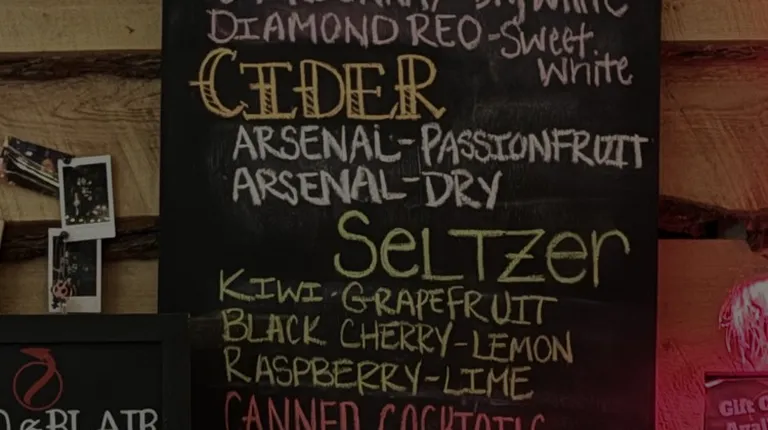 DIAMOND REO-Sweet
White
CIDER
ARSENAL-PASSIONFRUIT
ARSENAL-DRY
SELTZER
KIWI-GRAPEFRUIT
BLACK CHERRY-LEMON
RASPBERRY-LIME
CANNED COCKTAILS
&BLAIR
Gift